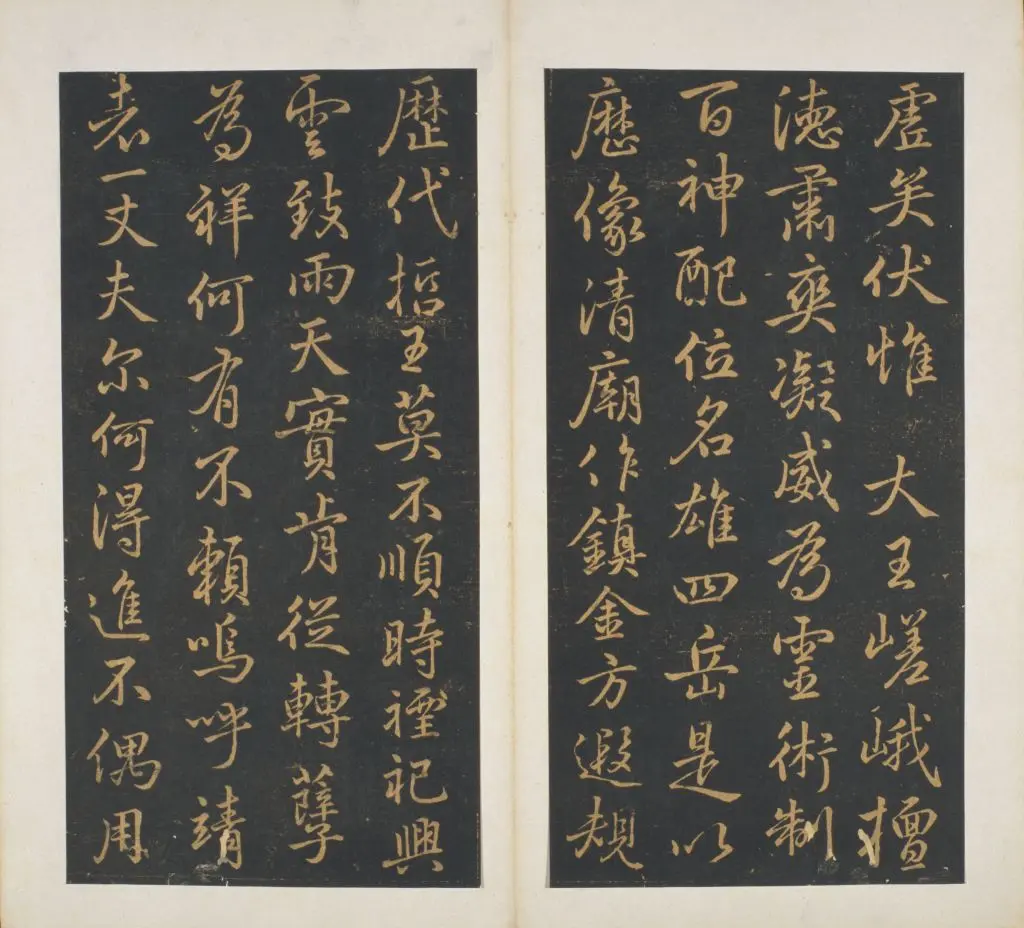 虛矣伏惟 大王嵯峨擅
德肅爽凝威為靈術制
百神配位名雄四岳是以
曆像清廟作鎮金方遐規
歷代哲王莫不順時禋祀興
雲致雨天實肯從轉孽
為祥何有不賴嗚呼靖
者一丈夫尔何得進不偶用